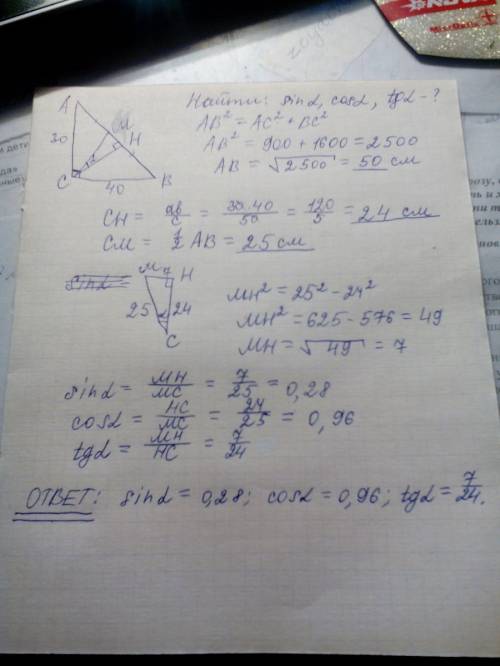 Найти: sinα, cosα, tgα - ?
AB² = AC² + BC²
AB² = 900 + 1600 = 2500
AB = √2500 = 50 см
A
M
H
30
C
α
40
B
CH = ab/c = 30·40/50 = 120/5 = 24 см
CM = 1/2 AB = 25 см
sinα
M 7 H
25 24
C
MH² = 25² - 24²
MH² = 625 - 576 = 49
MH = √49 = 7
sinα = MH/MC = 7/25 = 0,28
cosα = HC/MC = 24/25 = 0,96
tgα = MH/HC = 7/24
ОТВЕТ: sinα = 0,28; cosα = 0,96; tgα = 7/24.